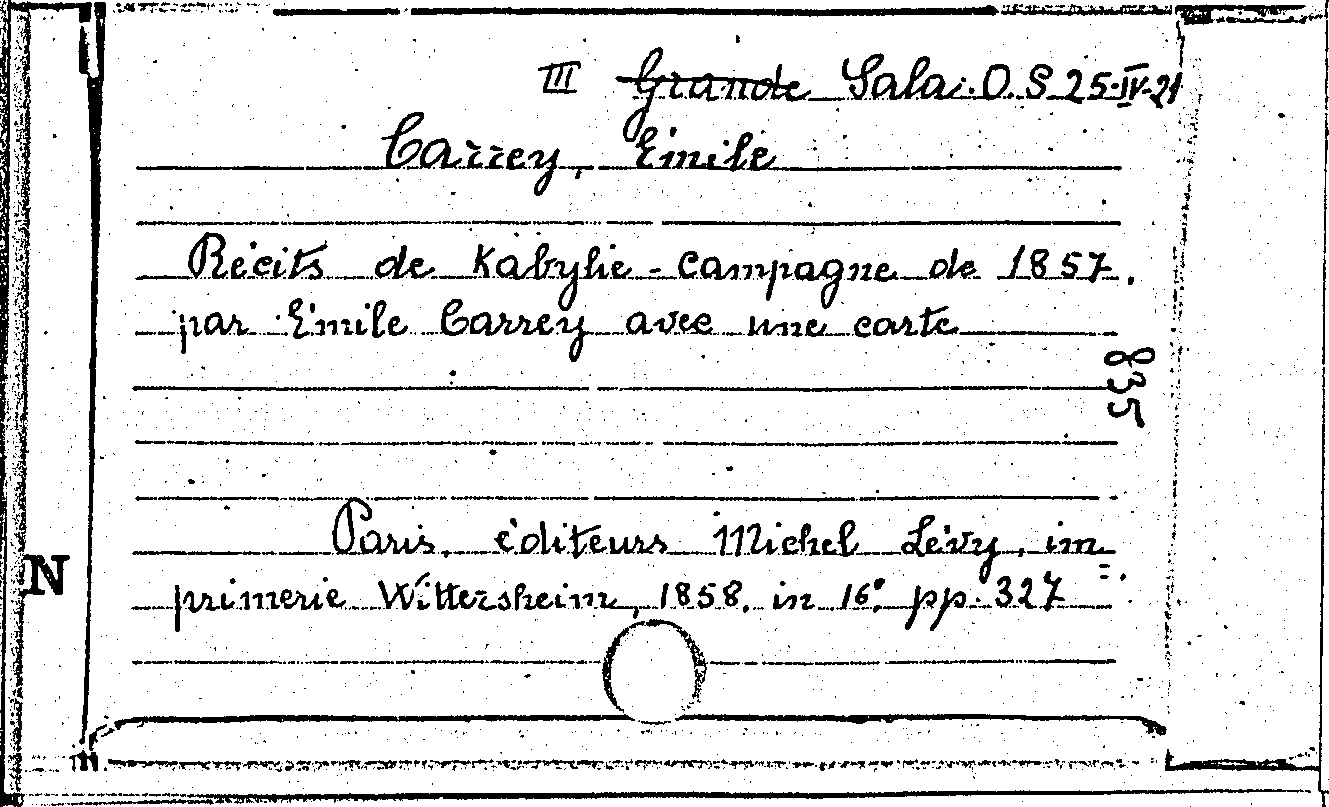 III Grande Sala. O. S. 25-IV-21
Carrey, Emile
Récits de Kabylie - Campagne de 1857.
par Emile Carrey avec une carte
835
Paris, éditeurs Michel Lévy, im=
N
primerie Wittersheim, 1858. in 16º. pp. 327